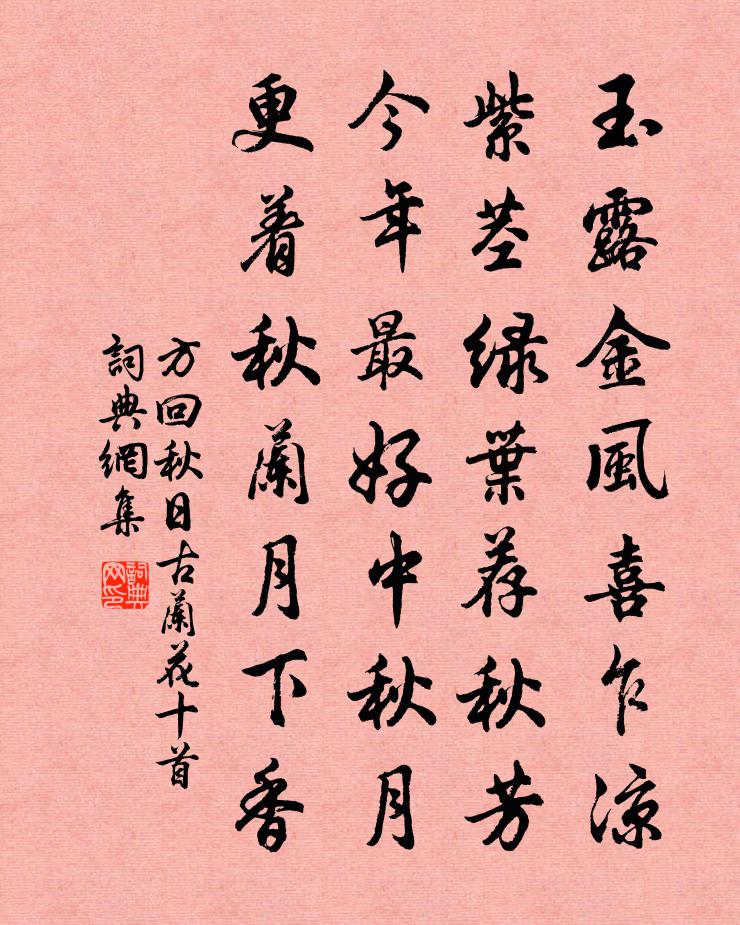 玉露金風喜乍凉
紫茎绿葉荐秋芳
今年最好中秋月
更着秋蘭月下香
方回秋日古蘭花十首
詞典網集
詞典网印